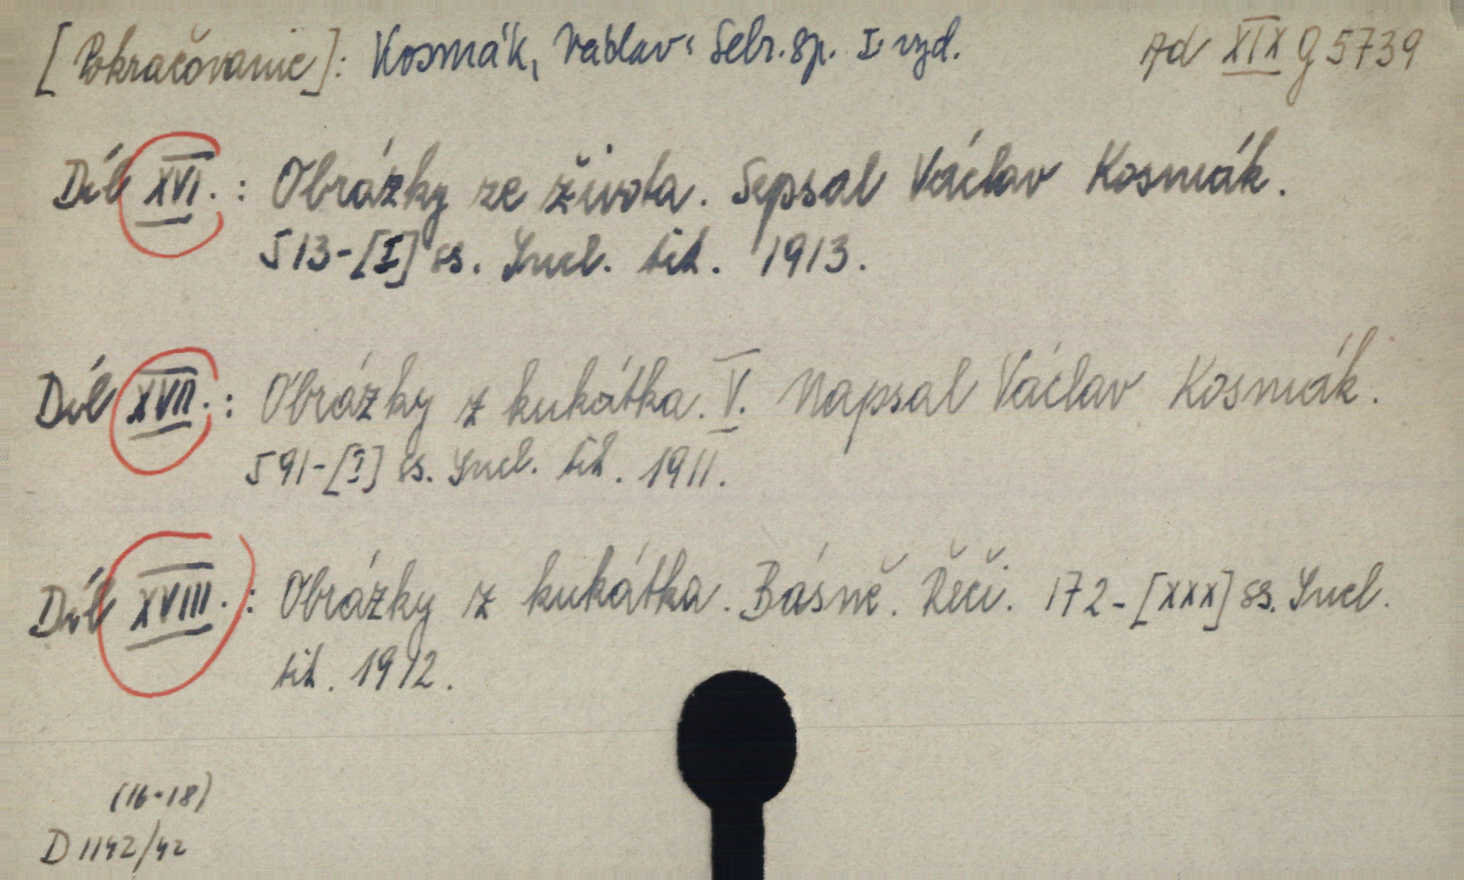 [Pokračovanie]: Kosmák, Václav: Sebr. sp. I. vyd. Ad XIX G 5739
Díl XVI.: Obrázky ze života. Sepsal Václav Kosmák.
513-[I] ss. Incl. tit. 1913.
Díl XVII.: Obrázky z kukátka. V. Napsal Václav Kosmák.
591-[I] ss. Incl. tit. 1911.
Díl XVIII.: Obrázky z kukátka. Básně. Řeči. 172-[XXX] ss. Incl.
tit. 1912.
(16-18)
D 1142/42